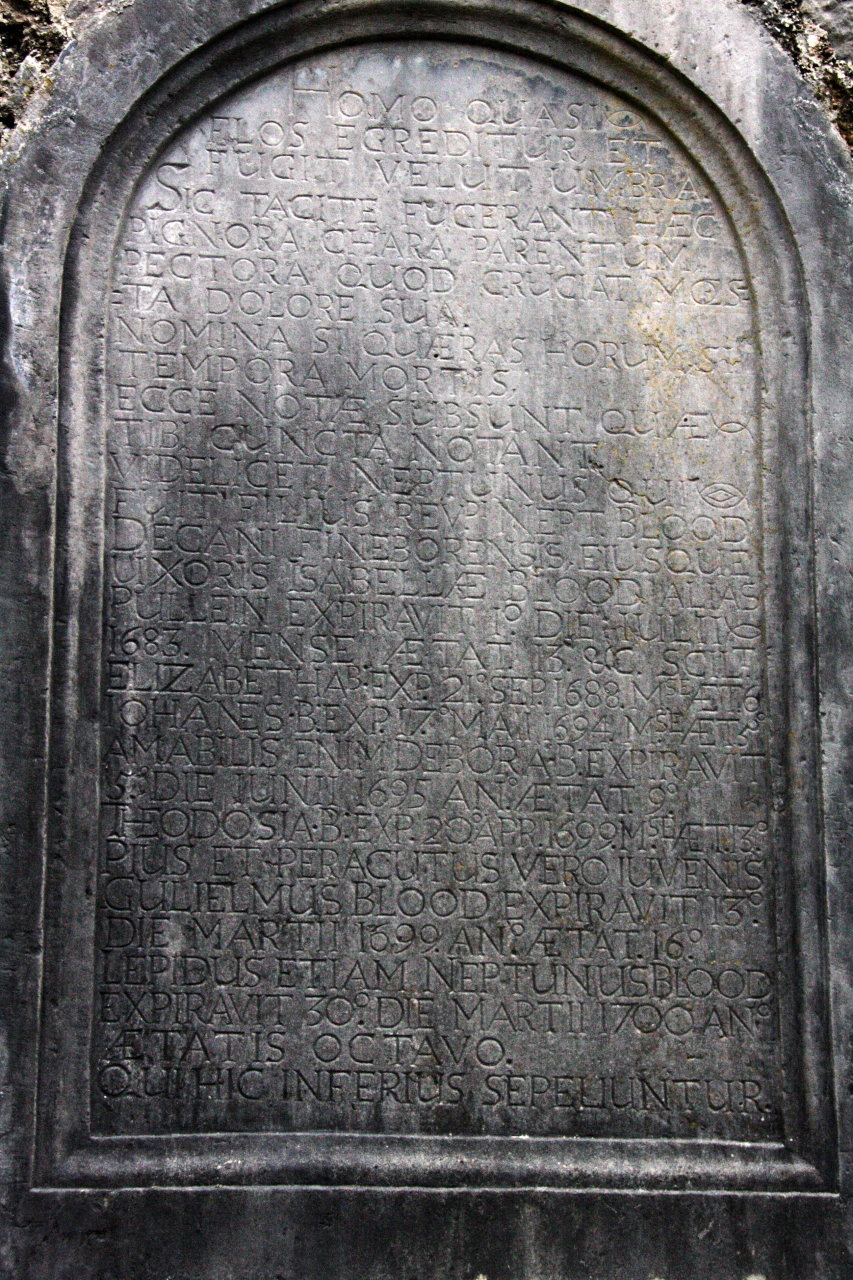 HOMO QUASI
FLOS EGREDITUR ET
FUGIT VELUT UMBRA
SIC TACITE FUGERANT HÆC
PIGNORA CHARA PARENTUM,
PECTORA QUOD CRUCIAT MŒS=
=TA DOLORE SUA.
NOMINA SI QUÆRAS HORUM, SI
TEMPORA MORTIS,
ECCE NOTÆ SUBSUNT QUÆ
TIBI CUNCTA NOTANT.
VIDELICET NEPTUNUS QUI
FUIT FILIUS REVDI NEPT: BLOOD
DECANI FINEBORENSIS, EIUSQUE
UXORIS ISABELLÆ BLOOD ALIAS
PULLEIN EXPIRAVIT 1º DIE IULII
1683. MENSE ÆTAT. 13. &C. SCIT
ELIZABETHA B. EXP. 21º SEP. 1688. MSE ÆT 6
IOHANES B. EXP. 17º MAI 1694 MSE ÆT
AMABILIS ENIM DEBORA B. EXPIRAVIT
5º DIE IUNII 1695 ANº ÆTAT. 9º
THEODOSIA B. EXP. 20º APR. 1699. MSE ÆT 13º
PIUS ET PERACUTUS VERO JUVENIS
GULIELMUS BLOOD EXPIRAVIT 13º
DIE MARTII 1699. ANº ÆTAT. 16º
LEPIDUS ETIAM NEPTUNUS BLOOD
EXPIRAVIT 30º DIE MARTII 1700 ANº
ÆTATIS OCTAVO.
QUI HIC INFERIUS SEPELIUNTUR.